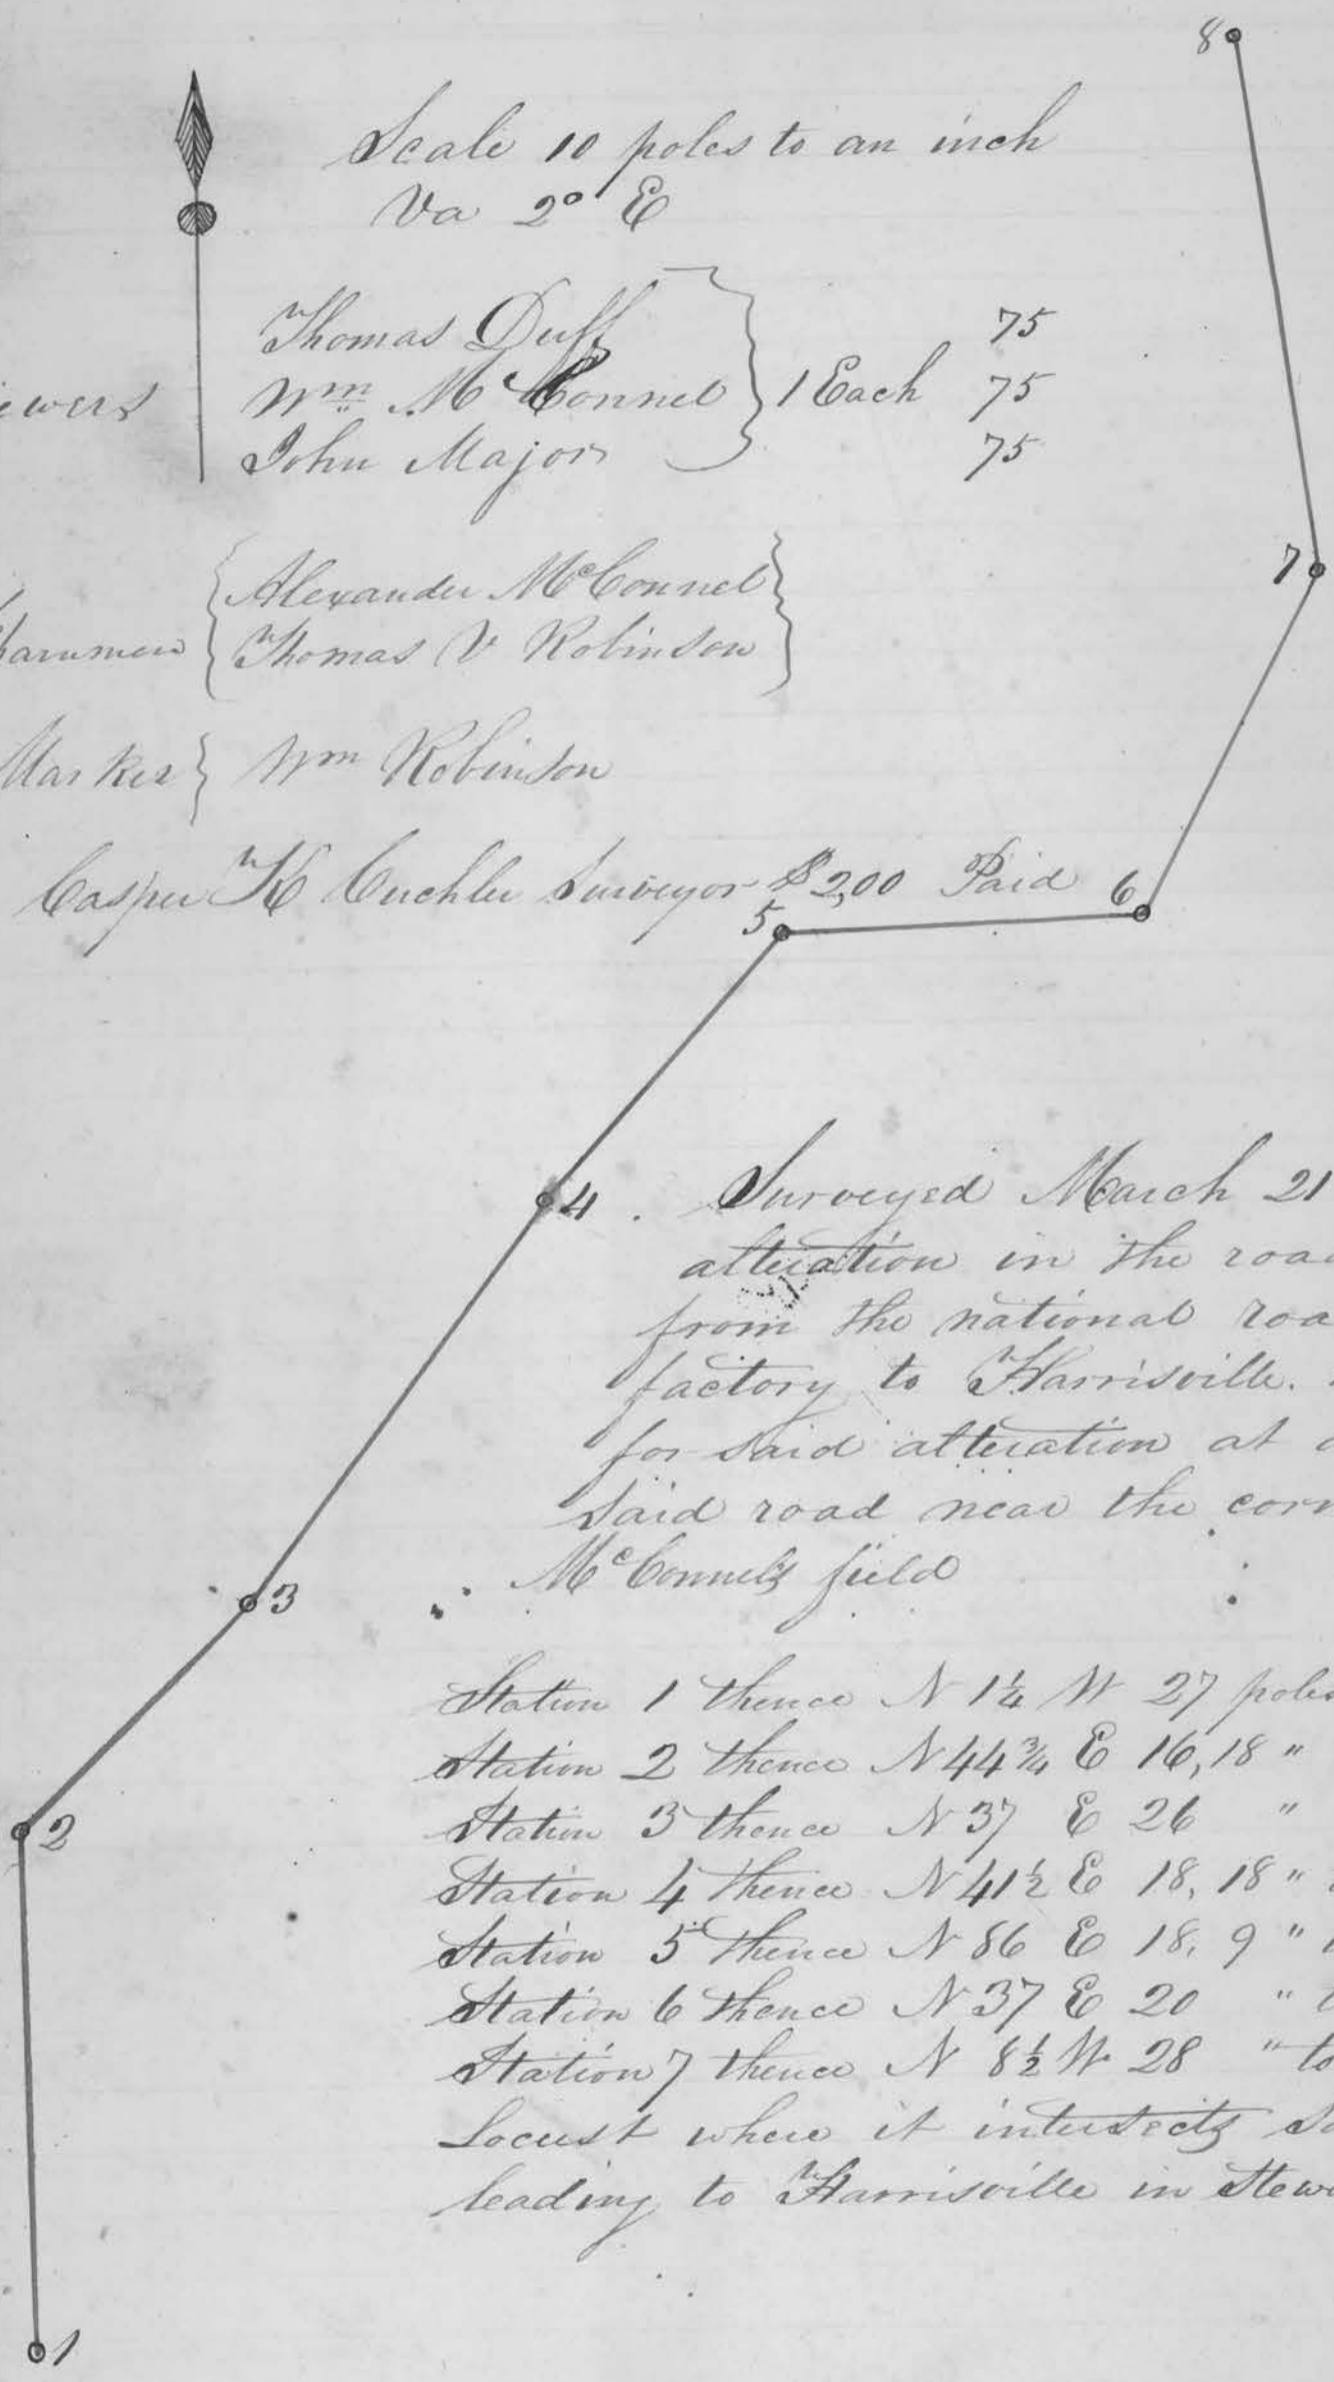 8
Scale 10 poles to an inch
Va 2° E
Thomas Duff 75
iewers Wm McConnel } 1 Each 75
John Major 75
7
{ Alexander McConnel }
Thomas V Robinson
Marker } Wm Robinson
Casper K Cuchler Surveyor $2,00 Paid 6
5
4
Surveyed March 21
alteration in the roa
from the national roa
factory to Harrisville.
for said alteration at
said road near the corn
3
McConnel's field
Station 1 thence N 1¼ W 27 poles
Station 2 thence N 44¾ E 16,18 "
2
Station 3 thence N 37 E 26 "
Station 4 thence N 41½ E 18,18 "
Station 5 thence N 86 E 18,9 "
Station 6 thence N 37 E 20 "
Station 7 thence N 8½ W 28 " to
Locust where it intersects
leading to Harrisville in Stew
1